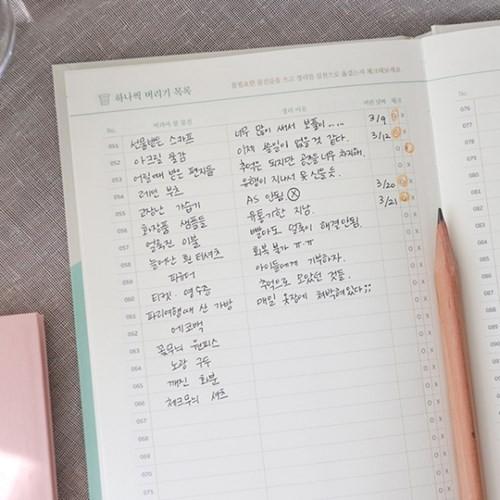 하나씩 버리기 목록
불필요한 물건들을 쓰고 정리를 실천으로 옮겼는지 체크해보세요
No. 버려야 할 물건 정리 이유 버린 날짜 체크
051 선물받은 스카프 너무 많이 써서 보풀이..... 3/9 O X
052 아크릴 물감 이제 쓸일이 없을것 같다. 3/12 O X
053 어릴때 받은 편지들 추억은 되지만 공간을 너무 차지해. O X
054 레인 부츠 유행이 지나서 못 신을듯. O X
055 고장난 가습기 AS 안됨 ⓧ 3/20 O X
056 화장품 샘플들 유통기한 지남. 3/21 O X
057 얼룩진 이불 빨아도 얼룩이 해결안됨. O X
058 늘어난 흰 티셔츠 회복 불가 ㅠ.ㅠ O X
059 아이들에게 기부하자. O X
060 티켓. 영수증 추억으로 모았던 것들. O X
061 파리여행때 산 가방 매일 옷장에 처박혀있다;; O X
062 에코백 O X
063 꽃무늬 원피스 O X
064 노랑 구두 O X
065 깨진 화분 O X
066 체크무늬 셔츠 O X
067 O X
068 O X
069 O X
070
071
072
073
074
075
No.
076
077
078
079
080
081
082
083